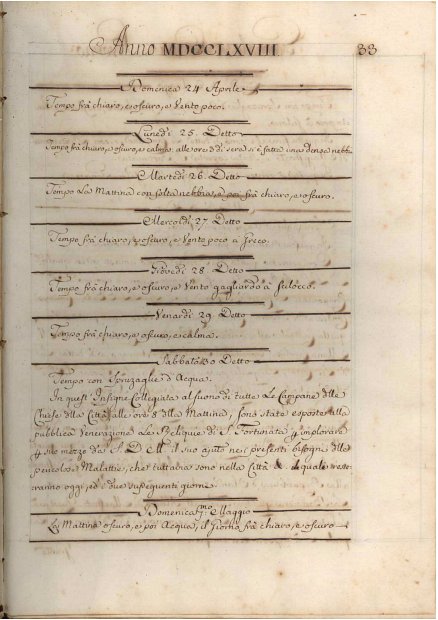 Anno MDCCLXVIII 33
Domenica 24 Aprile
Tempo frà chiaro, e oscuro, e Vento poco.
Lunedì 25. Detto
Tempo frà chiaro, e oscuro, e calmo; alle ore 3 di sera si è fatta una densa nebb.
Martedì 26. Detto
Tempo La Mattina con folta nebbia, e poi frà chiaro, e oscuro.
Mercoldì 27 Detto
Tempo frà chiaro, e oscuro, e Vento poco à Greco.
Giovedì 28 Detto
Tempo frà chiaro, e oscuro, e Vento gagliardo à Scilocco.
Venardì 29 Detto
Tempo frà chiaro, e oscuro, e calma.
Sabbato 30 Detto
Tempo con Spruzaglie d'Acqua.
In quest' Insigne Collegiata al suono di tutte Le Campane dlle
Chiese dlla Città alle ore 8 dlla Mattina, sono state esposte alla
pubblica Venerazione Le Reliquie di S. Fortunata p implorare
p suo mezzo da S. D. M. il suo ajuto nei presenti bisogni dlle
pericolose Malattie, che tuttavia sono nella Città &. le quali reste
ranno oggi, ed i due susseguenti giorni.
Domenica p.mo Maggio
La Mattina oscuro, e poi Acqua, il Giorno frà chiaro, e oscuro